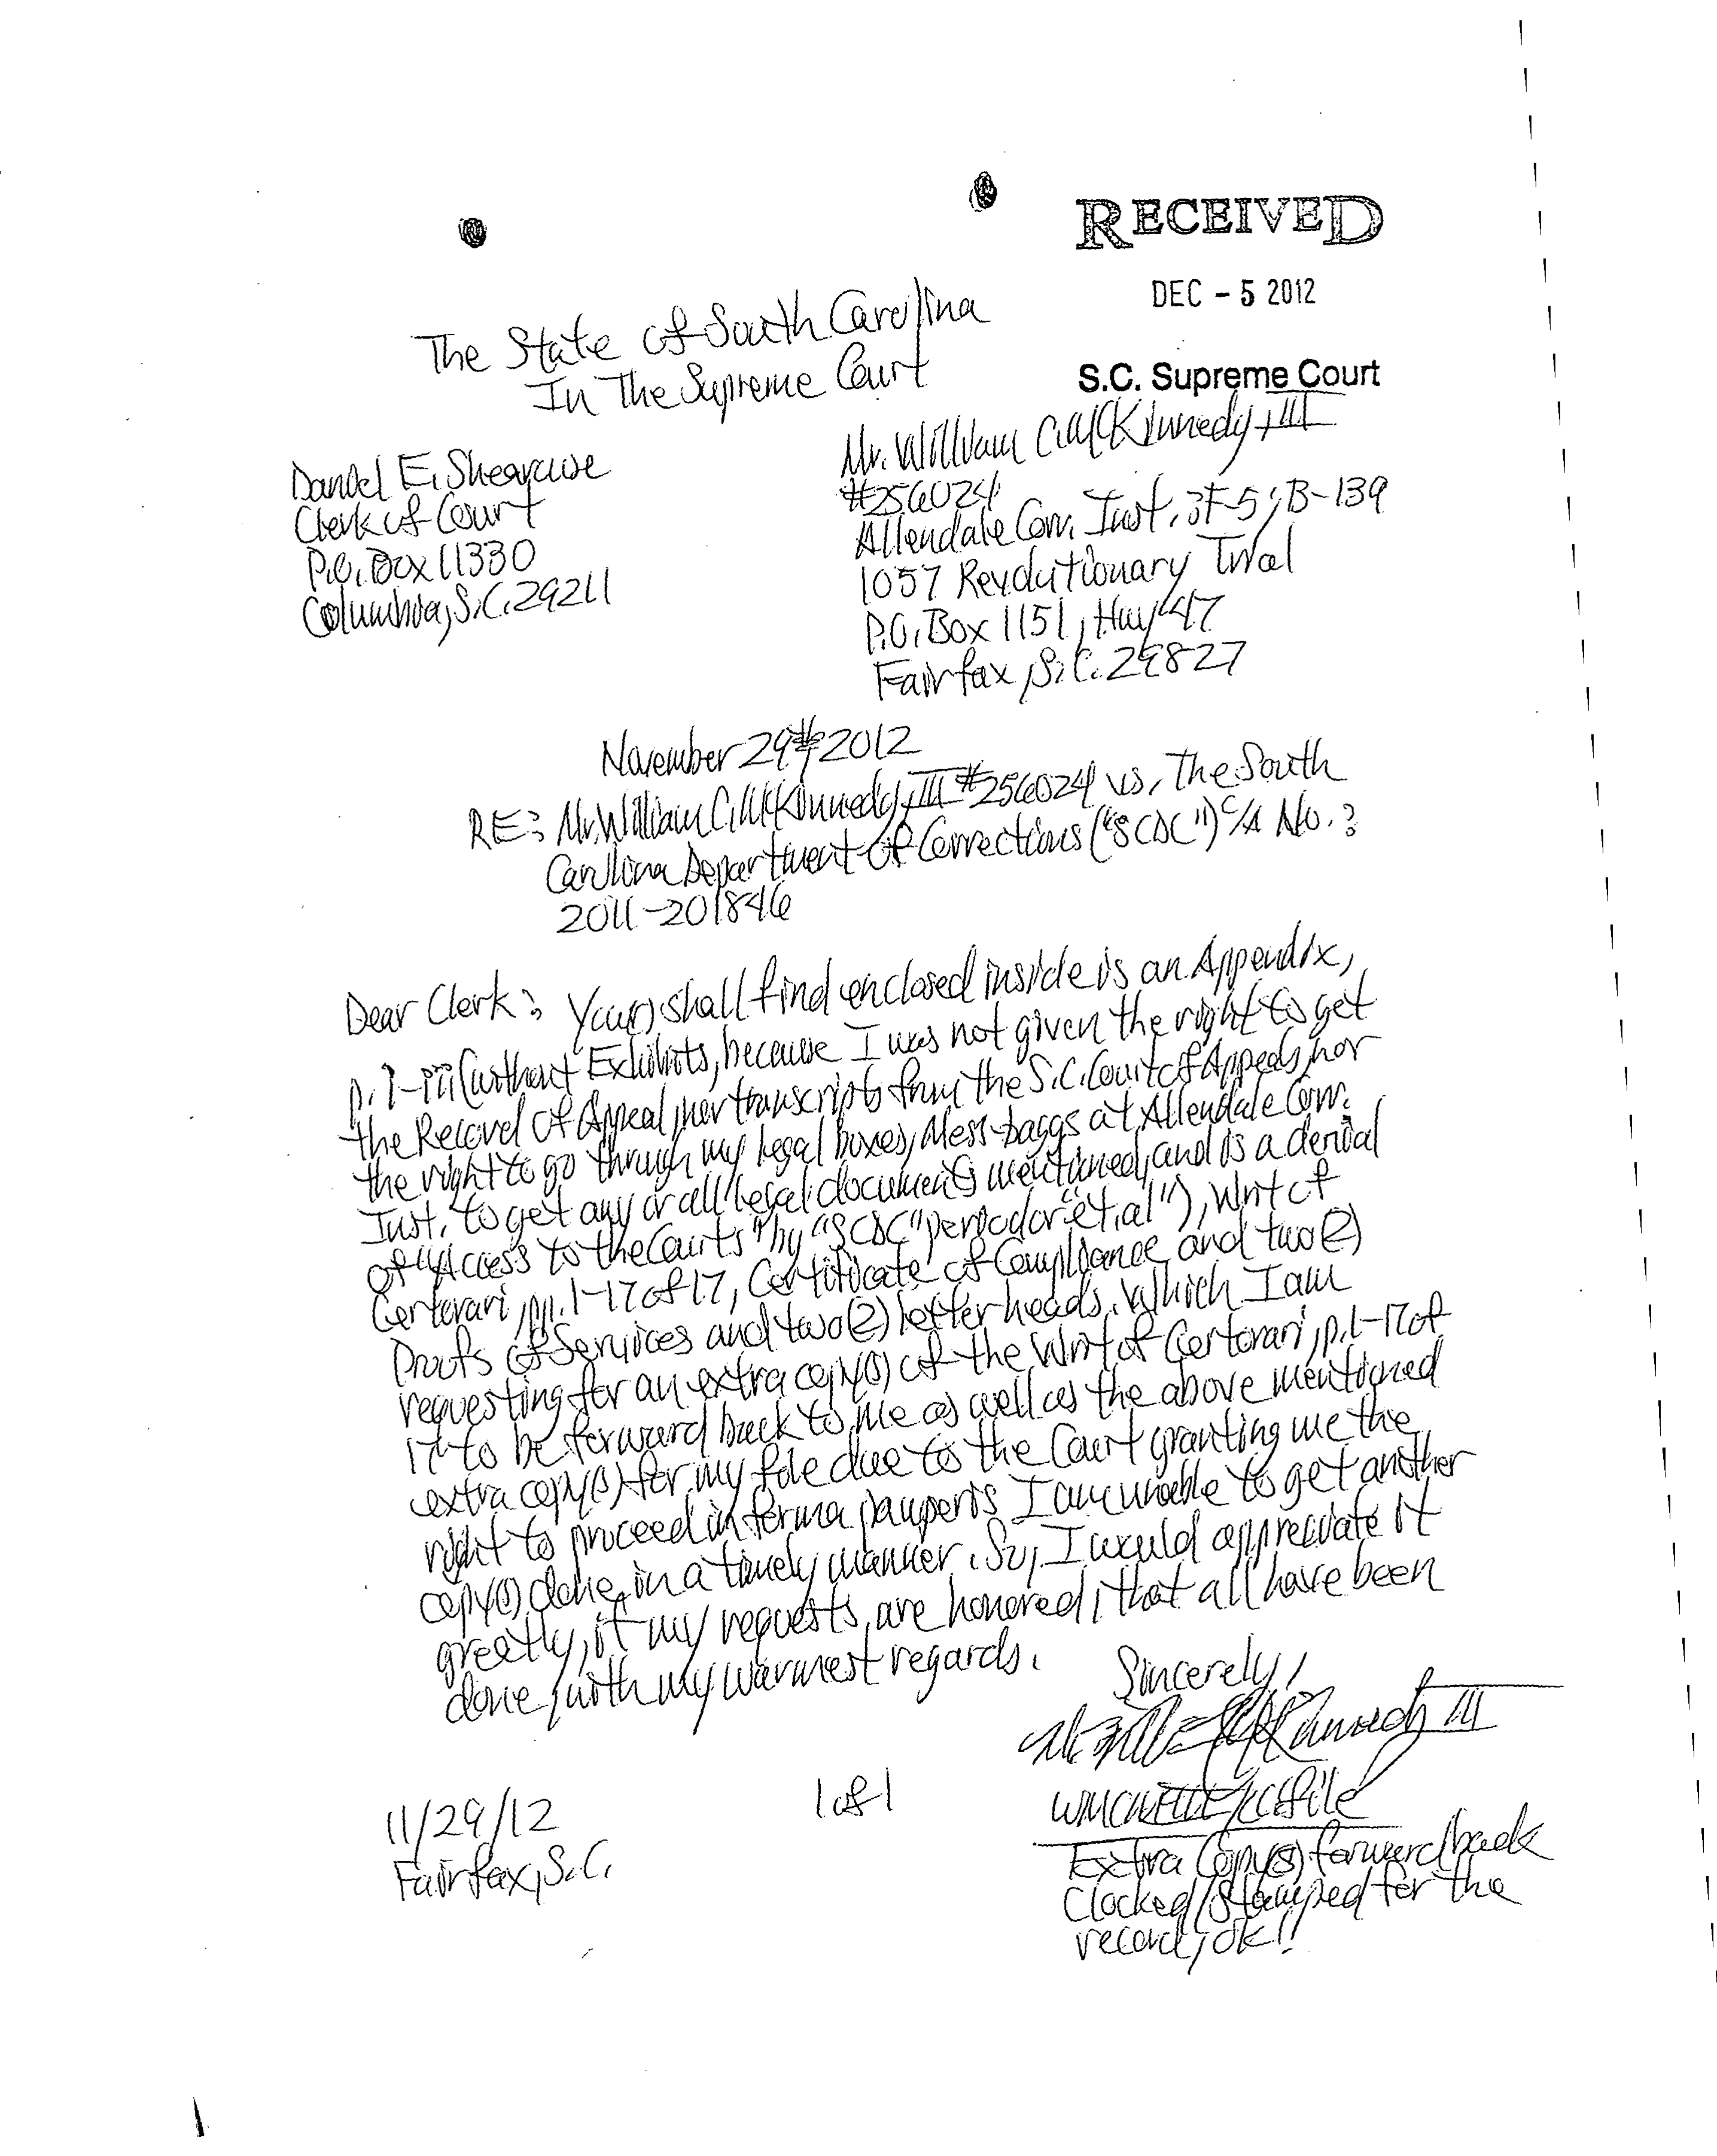 RECEIVED
DEC - 5 2012
S.C. Supreme Court
The State of South Carolina
In The Supreme Court
Daniel E. Shearouse
Clerk of Court
P.O. Box 11330
Columbia, S.C. 29211
Mr. William C. McKinnedy, III
#256024
Allendale Corr. Inst. :F-5; B-139
1057 Revolutionary Trial
P.O. Box 1151, Hwy 47
Fairfax, S.C. 29827
November 29th, 2012
RE: Mr. William C. McKinnedy, III #256024 vs. The South
Carolina Department of Corrections ("SCDC") C/A No.:
2011-201846
Dear Clerk: Your(s) shall find enclosed inside is an Appendix,
p. i-iii (without Exhibits, because I was not given the right to get
the Record of Appeal, nor transcripts from the S.C. Court of Appeals, nor
the right to go through my legal boxes, Mess-baggs at Allendale Corr.
Inst. to get any or all legal documents mentioned, and is a denial
of "Access to the Courts" by "SCDC" period or "et. al"), Writ of
Certorari, pp. 1-17 of 17, Certificate of Compliance and two(2)
Proofs of Services and two(2) letter heads. Which I am
requesting for an extra copy(s) of the Writ of Certorari, p. 1-17 of
17 to be forward back to me as well as the above mentioned
extra copy(s) for my file due to the Court granting me the
right to proceed in forma pauperis I am unable to get another
copy(s) done in a timely manner. So, I would appreciate it
greatly, if my requests are honored, that all have been
done, with my warmest regards.
Sincerely,
McKinnedy III
file
11/29/12
Fairfax, S.C.
1 of 1
Extra Copy(s) forward back
Clocked/Stamped for the
record, ok!!